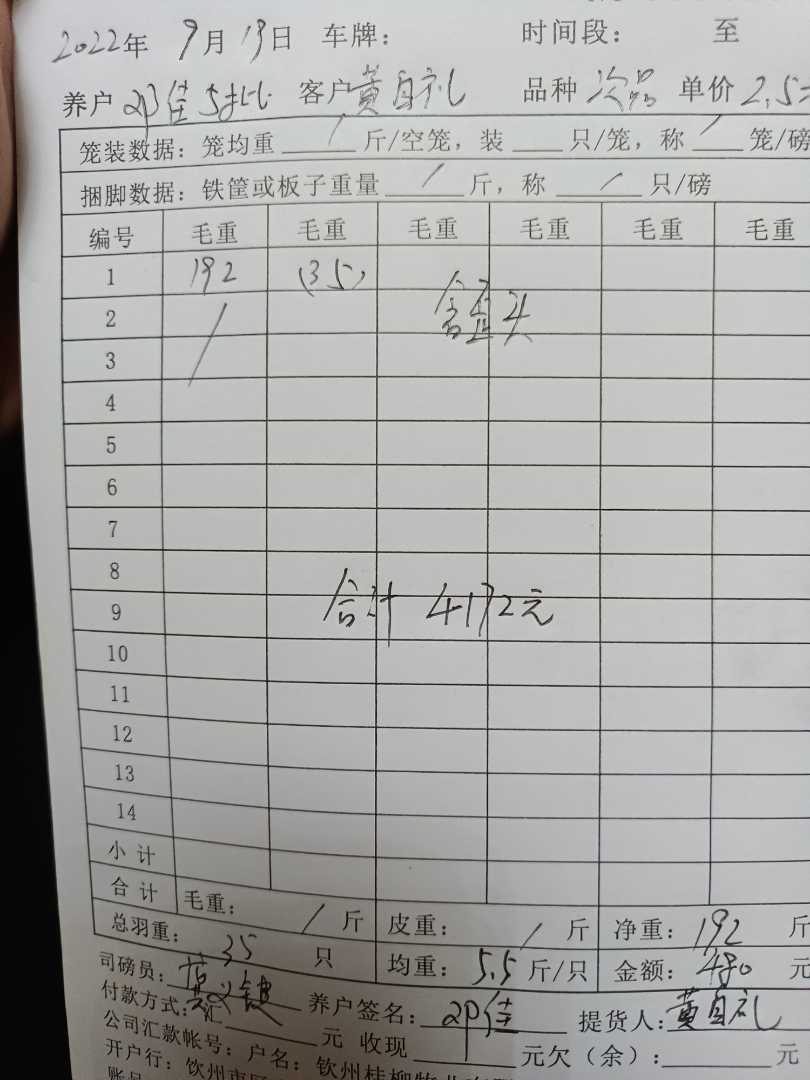 2022年 9月13日 车牌： 时间段： 至
养户 邓佳5批 客户 黄自礼 品种 次品 单价 2.5
笼装数据：笼均重 / 斤/空笼，装 只/笼，称 / 笼/磅
捆脚数据：铁筐或板子重量 / 斤，称 / 只/磅
编号 毛重 毛重 毛重 毛重 毛重 毛重
1 192 (35)
2 /
3
4
5
6
7
8
合计 4172元
9
10
11
12
13
14
小计
合计 毛重： / 斤 皮重： / 斤 净重：192 斤
总羽重： 35 只 均重：5.5 斤/只 金额：480 元
司磅员： 养户签名：邓佳 提货人：黄自礼
付款方式：汇 元 收现 元欠（余）： 元
公司汇款帐号：户名：钦州桂柳牧业
开户行：钦州市
账号